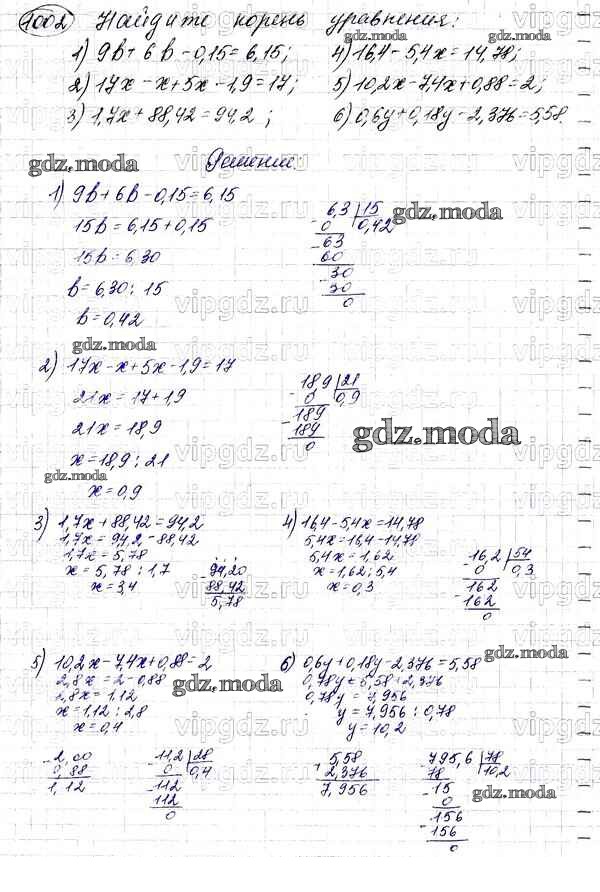 1002 Найдите корень уравнения:
1) 9b+6b-0,15=6,15; 4) 16,4-5,4x=14,78;
2) 17x-x+5x-1,9=17; 5) 10,2x-7,4x+0,88=2;
3) 1,7x+88,42=94,2; 6) 0,6y+0,18y-2,376=5,58.
Решение.
gdz.moda
1) 9b+6b-0,15=6,15
15b=6,15+0,15
15b=6,30
b=6,30:15
b=0,42
6,3 15
0 0,42
63
60
30
30
0
gdz.moda
gdz.moda
2) 17x-x+5x-1,9=17
21x=17+1,9
21x=18,9
x=18,9:21
x=0,9
18,9 21
0 0,9
189
189
0
gdz.moda
gdz.moda
3) 1,7x+88,42=94,2
1,7x=94,2-88,42
1,7x=5,78
x=5,78:1,7
x=3,4
94,20
88,42
5,78
4) 16,4-5,4x=14,78
5,4x=16,4-14,78
5,4x=1,62
x=1,62:5,4
x=0,3
16,2 54
0 0,3
162
162
0
gdz.moda
5) 10,2x-7,4x+0,88=2
2,8x=2-0,88
2,8x=1,12
x=1,12:2,8
x=0,4
gdz.moda
2,00
0,88
1,12
11,2 28
0 0,4
112
112
0
6) 0,6y+0,18y-2,376=5,58
0,78y=5,58+2,376
0,78y=7,956
y=7,956:0,78
y=10,2
5,58
2,376
7,956
795,6 78
78 10,2
15
0
156
156
0
gdz.moda
vipgdz.ru